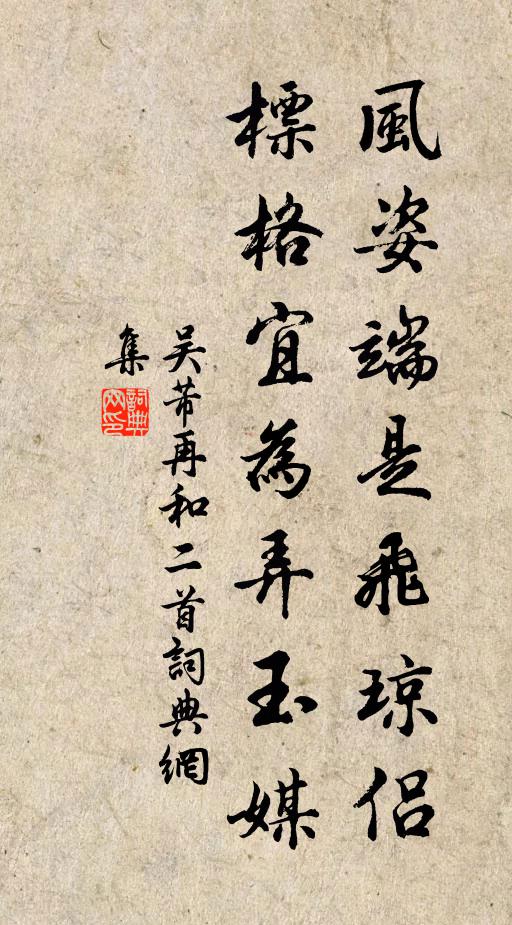 風姿端是飛琼侣
標格宜為弄玉媒
吴芾再和二首詞典網
集
詞典
网印